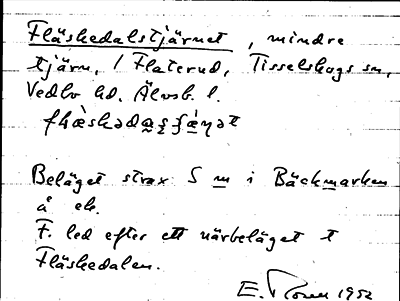 Fläskedalstjärnet, mindre
tjärn, i Flaterud, Tisselskogs sn,
Vedbo hd. Älvsb. l.
Beläget strax S m i Bäckmarken
å ek.
F. led efter ett närbeläget t
Fläskedalen.
E. 1952